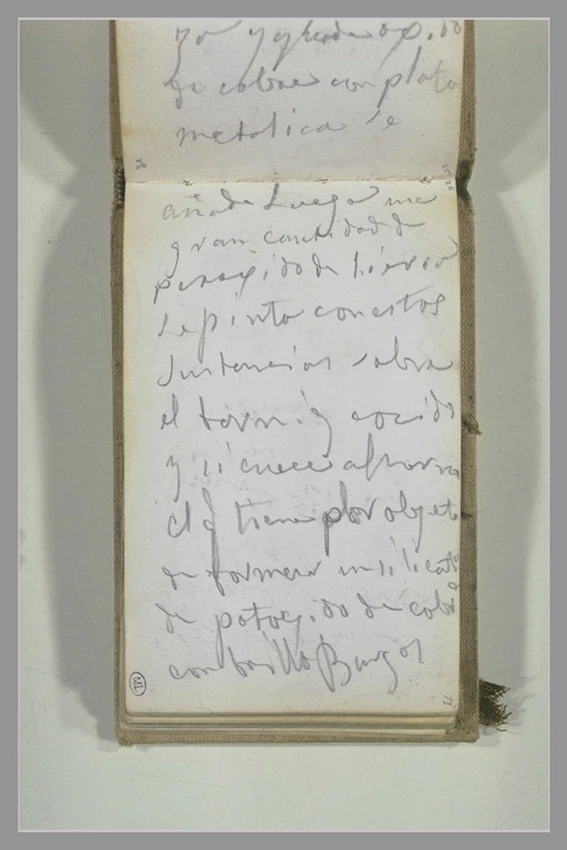 de cobre con plata
metalica se
añade Luego una
gran cantidad de
peroxido de hierro
se pinta con estos
Sustancias sobre
el barniz cocido
y
el q tiene por objeto
de formar un silicato
de potoxido de cobre
con brillo Burgos
ML